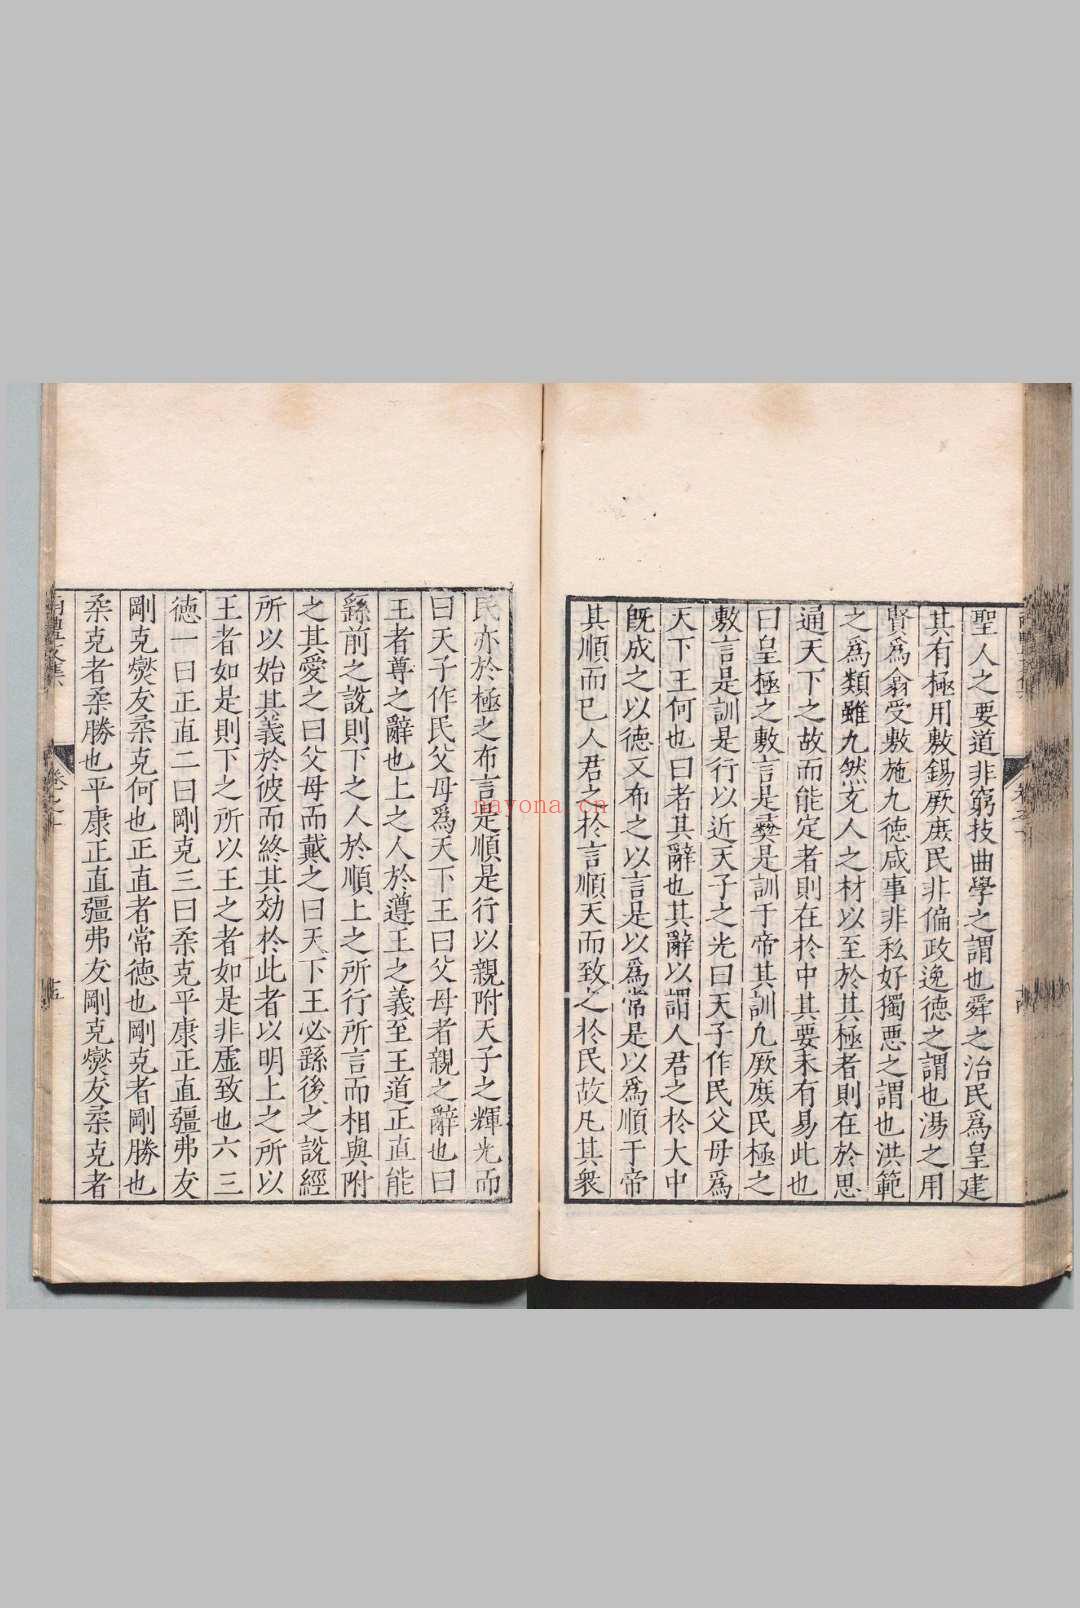 聖人之要道非窮技曲學之謂也舜之治民爲皇建
其有極用敷錫厥庶民非偏政逸德之謂也湯之用
賢爲翕受敷施九德咸事非私好獨惡之謂也洪範
之爲類雖九然充人之材以至於其極者則在於思
通天下之故而能定者則在於中其要未有易此也
曰皇極之敷言是彝是訓于帝其訓凡厥庶民極之
敷言是訓是行以近天子之光曰天子作民父母爲
天下王何也曰者其辭也其辭以謂人君之於大中
旣成之以德又布之以言是以爲常是以爲順于帝
其順而已人君之於言順天而致之於民故凡其衆
民亦於極之布言是順是行以親附天子之輝光而
曰天子作民父母爲天下王曰父母者親之辭也曰
王者尊之辭也上之人於遵王之義至王道正直能
繇前之說則下之人於順上之所行所言而相與附
之其愛之曰父母而戴之曰天下王必繇後之說經
所以始其義於彼而終其効於此者以明上之所以
王者如是則下之所以王之者如是非虛致也六三
德一曰正直二曰剛克三曰柔克平康正直彊弗友
剛克燮友柔克何也正直者常德也剛克者剛勝也
柔克者柔勝也平康正直彊弗友剛克燮友柔克者
南豐文集
卷之十
十五
nayona.cn